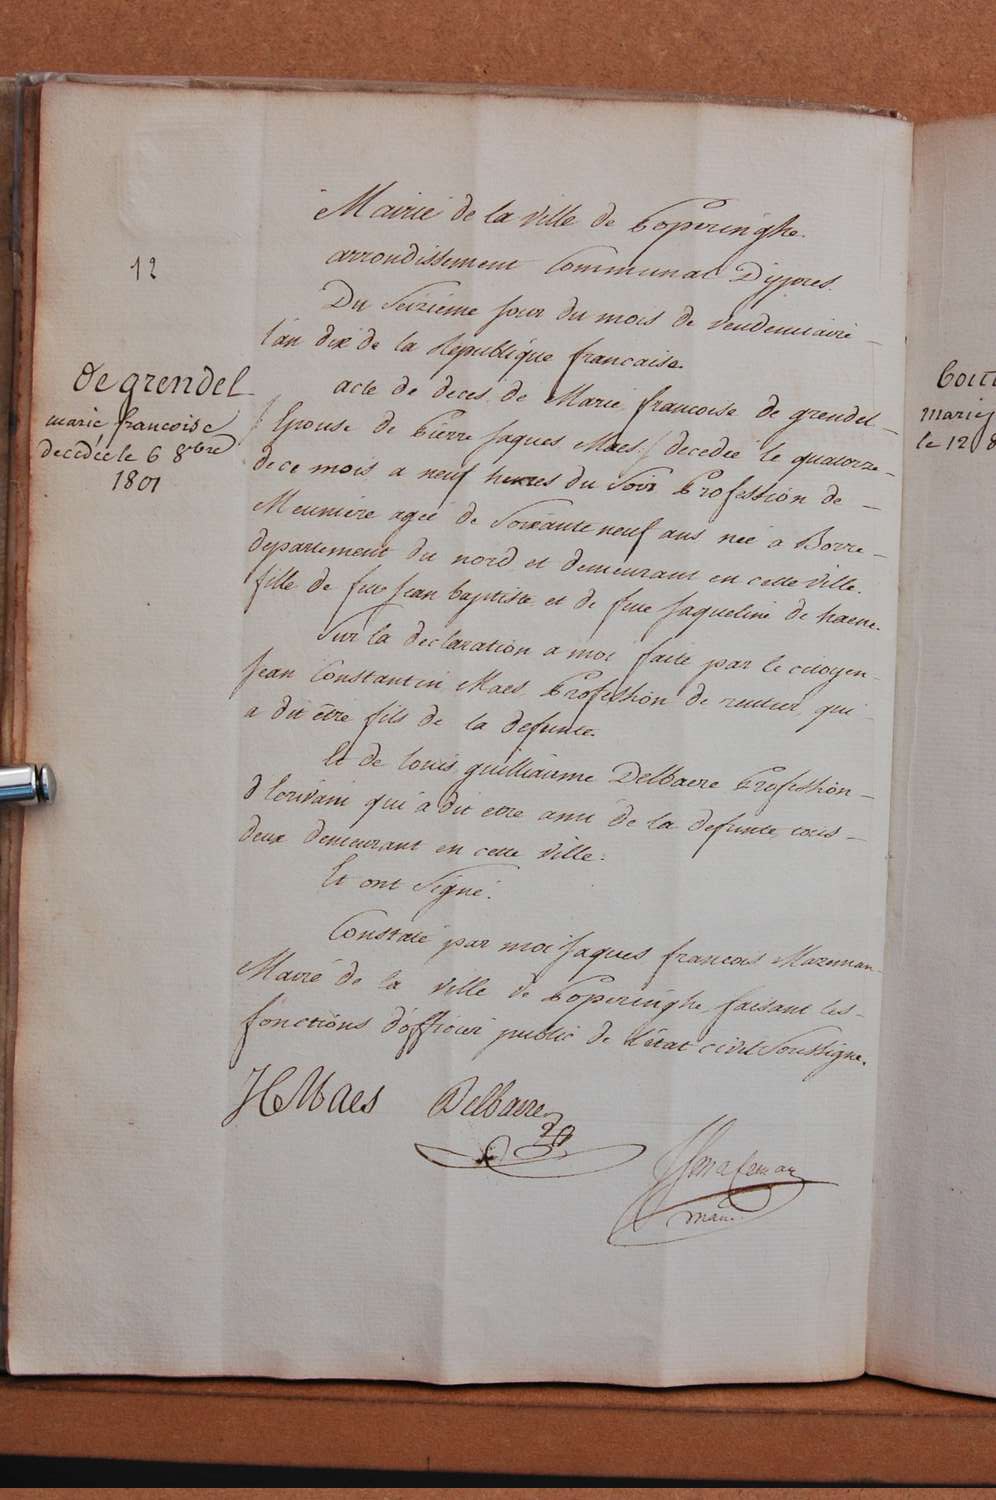 12
de grendel
marie francoise
decedée le 6 8bre
1801
Mairie de la ville de Poperinghe.
arrondissement Communal D'ypres.
Du Seizieme jour du mois de vendemiaire –
l'an dix de la Republique francaise.
acte de deces de Marie francoise de grendel –
/ Epouse de Pierre Jaques Maes / decedée le quatorze –
de ce mois a neuf heures du Soir Profession de –
Meuniere agée de Soixante neuf ans née a Borre –
departement du nord et demeurant en cette ville.
fille de feu Jean baptiste et de feue Jaqueline de haene.
Sur la declaration a moi faite par le citoyen –
Jean Constantin Maes Profession de rentier, qui –
a dit être fils de la defunte.
Et de Louis guilliaume Delbaere Profession –
d'Ecrivain qui a dit etre ami de la defunte, tous –
deux demeurant en cette ville.
Et ont Signé.
Constaté par moi Jaques francois Mazeman –
Maire de la ville de Poperinghe, faisant les –
fonctions d'officier public de l'état civil Soussigne.
Maes Delbaere
maire
marie
le 12 8